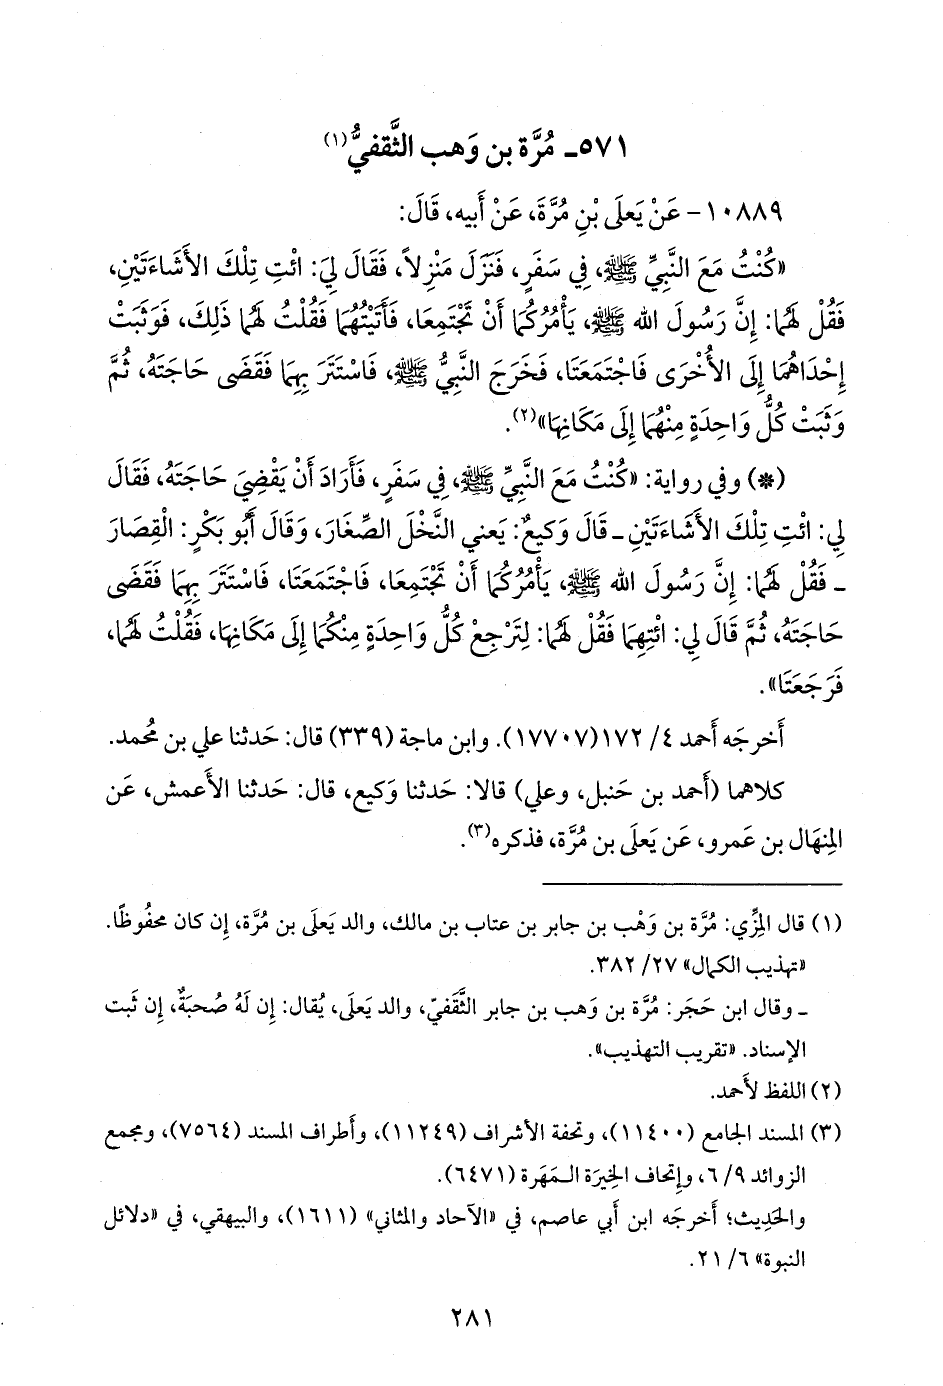 ٥٧١ـ مُرَّة بن وَهب الثَّقفيُّ(١)
١٠٨٨٩ - عَنْ يَعلَى بْنِ مُرَّةَ، عَنْ أَبيه، قَالَ:
«كُنْتُ مَعَ النَّبِيِّ ﷺ، فِي سَفَرٍ، فَنَزَلَ مَنْزِلاً، فَقَالَ لِيَ: ائْتِ تِلْكَ الأَشَاءَتَيْنِ،
فَقُلْ لَهُمَا: إِنَّ رَسُولَ الله ﷺ، يَأْمُرُكُمَا أَنْ تَجْتَمِعَا، فَأَتَيْتُهُمَا فَقُلْتُ لَهُمَا ذَلِكَ، فَوَثَبَتْ
إِحْدَاهُمَا إِلَى الأُخْرَى فَاجْتَمَعَتَا، فَخَرَجَ النَّبِيُّ ﷺ، فَاسْتَتَرَ بِهِمَا فَقَضَى حَاجَتَهُ، ثُمَّ
وَثَبَتْ كُلُّ وَاحِدَةٍ مِنْهُمَا إِلَى مَكَانِهَا»(٢).
(*) وفي رواية: «كُنْتُ مَعَ النَّبِيِّ ﷺ، فِي سَفَرٍ، فَأَرَادَ أَنْ يَقْضِيَ حَاجَتَهُ، فَقَالَ
لِي: ائْتِ تِلْكَ الأَشَاءَتَيْنِ ـ قَالَ وَكِيعٌ: يَعني النَّخْلَ الصِّغَارَ، وَقَالَ أَبُو بَكْرٍ: الْقِصَارَ
ـ فَقُلْ لَهُمَا: إِنَّ رَسُولَ الله ﷺ، يَأْمُرُكُمَا أَنْ تَجْتَمِعَا، فَاجْتَمَعَتَا، فَاسْتَتَرَ بِهِمَا فَقَضَى
حَاجَتَهُ، ثُمَّ قَالَ لِي: ائْتِهِمَا فَقُلْ لَهُمَا: لِتَرْجِعْ كُلُّ وَاحِدَةٍ مِنْكُمَا إِلَى مَكَانِهَا، فَقُلْتُ لَهُمَا،
فَرَجَعَتَا».
أَخرجَه أَحمد ٤/ ١٧٢(١٧٧٠٧). وابن ماجة (٣٣٩) قال: حَدثنا علي بن مُحمد.
كلاهما (أَحمد بن حَنبل، وعلي) قالا: حَدثنا وَكيع، قال: حَدثنا الأَعمش، عَن
المِنهَال بن عَمرو، عَن يَعلَى بن مُرَّة، فذكره(٣).
(١) قال المِزِّي: مُرَّة بن وَهْب بن جابر بن عتاب بن مالك، والد يَعلَى بن مُرَّة، إِن كان محفُوظًا.
«تهذيب الكمال» ٢٧/ ٣٨٢.
ـ وقال ابن حَجَر: مُرَّة بن وَهب بن جابر الثَّقَفيّ، والد يَعلَى، يُقال: إِن لَهُ صُحبَةٌ، إِن ثَبت
الإسناد. «تقريب التهذيب».
(٢) اللفظ لأَحمد.
(٣) المسند الجامع (١١٤٠٠)، وتحفة الأشراف (١١٢٤٩)، وأَطراف المسند (٧٥٦٤)، ومجمع
الزوائد ٩/ ٦، وإتحاف الخِيرَة الـمَهَرة (٦٤٧١).
والحَدِيث؛ أَخرجَه ابن أَبي عاصم، في «الآحاد والمثاني» (١٦١١)، والبيهقي، في «دلائل
النبوة» ٦/ ٢١.
٢٨١